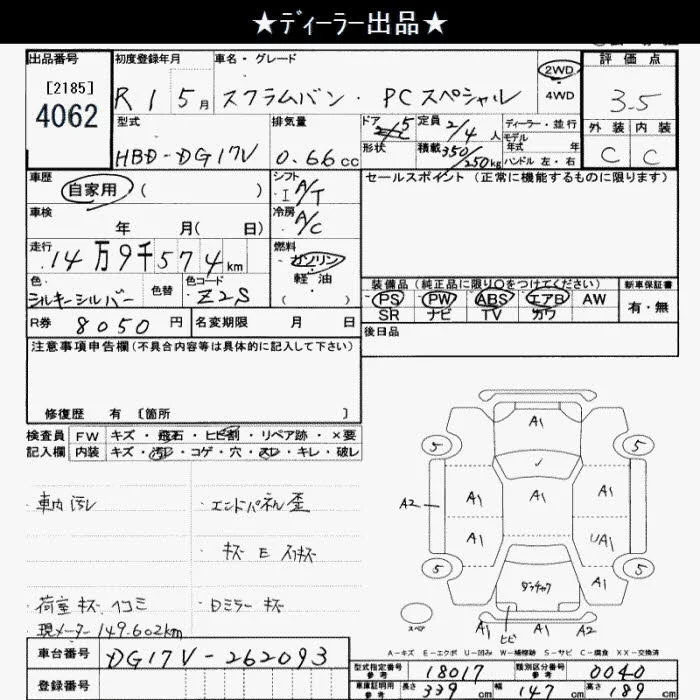 ★ディーラー出品★
出品番号
[2185]
4062
初度登録年月
R 1 5 月
車名・グレード
スクラムバン・PCスペシャル
2WD
・
4WD
評価点
3.5
外装 内装
C C
型式
HBD-DG17V
排気量
0.66 cc
ドア
5
形状
定員
2/4 人
積載
350/250 kg
ディーラー・並行
モデル
年式 年
ハンドル 左・右
車歴
自家用 ( )
シフト
I A/T
車検
年 月( 日)
冷房
A/C
走行
14万9千574 km
燃料
ガソリン
・
軽油
( )
色
シルキーシルバー
色替
色コード
Z2S
R券 8050 円
名変期限 月 日
セールスポイント (正常に機能するものに限ります)
装備品 (純正品に限り○をつけてください)
新車保証書
PS PW ABS エアB AW
SR ナビ TV カワ
有・無
後日品
注意事項申告欄 (不具合内容等は具体的に記入して下さい)
修復歴 有 〔箇所 〕
検査員
記入欄
FW キズ・飛石・ヒビ割・リペア跡・×要
内装 キズ・汚レ・コゲ・穴・スレ・キレ・破レ
・車内汚レ
・エンドパネル歪
・キズ E スリキズ
・荷室 キズ ヘコミ
・Dミラー キズ
現メーター 149.602km
A1
5 5
✓
A1 A1 A1
A2
A1 UA1
5 5
ダンチャク
A1
スペア
ヒビ
A1 A1 A2
A-キズ E-エクボ U-凹み W-補修跡 S-サビ C-腐食 XX-交換済
車台番号
DG17V-262093
登録番号
型式指定番号
参考
18017
類別区分番号
参考
0040
車庫証明用
参考
長さ 339 cm
幅 147 cm
高さ 189 cm